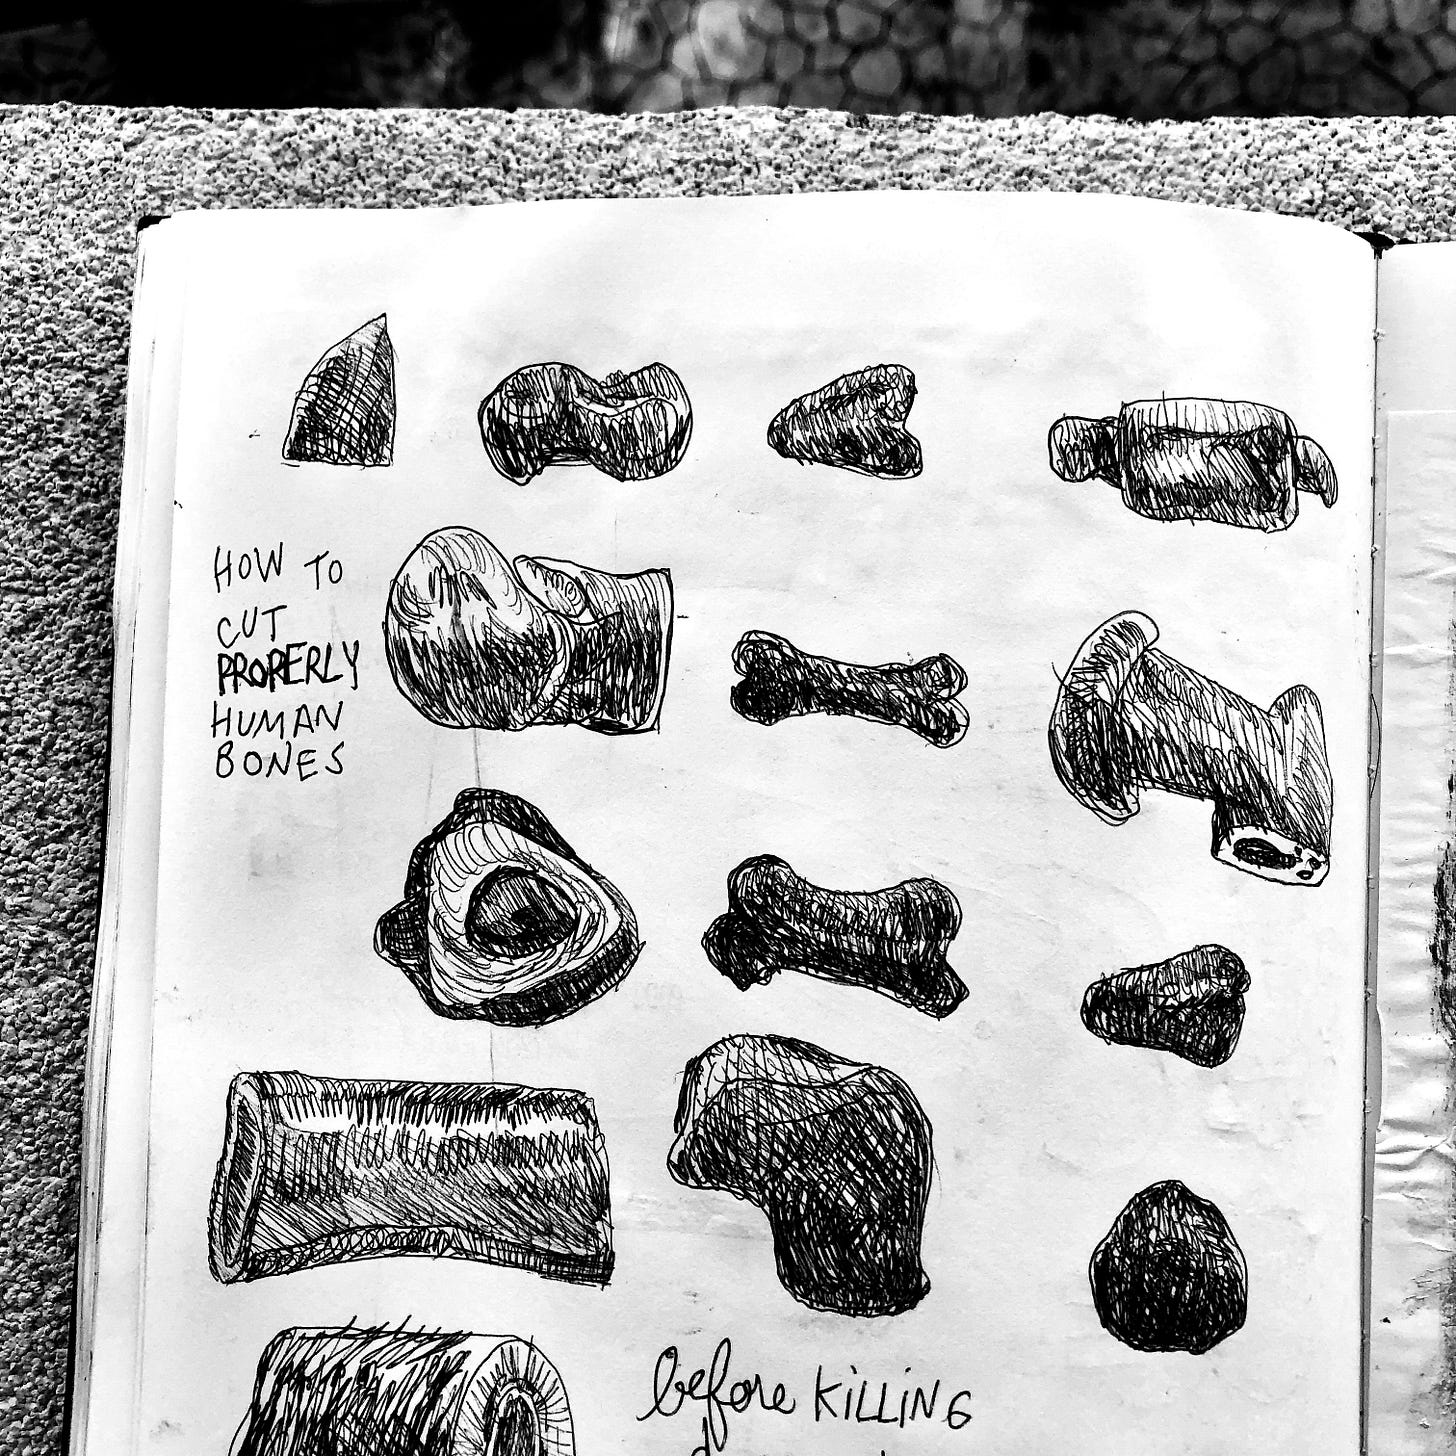 HOW TO
CUT
PROPERLY
HUMAN
BONES
before KiLLiNG